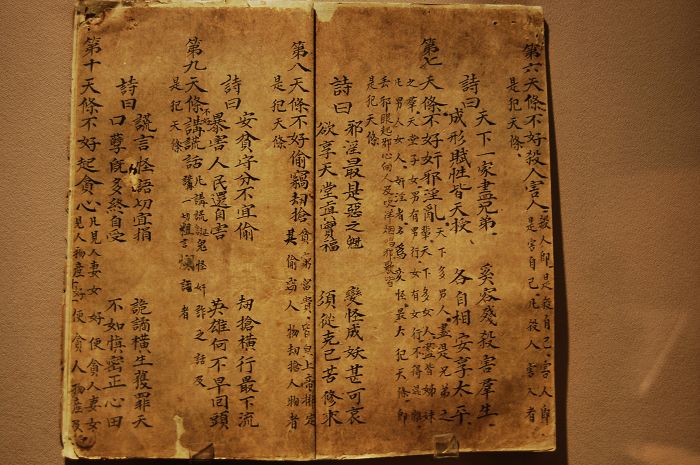 第六天條不好殺人害人 殺人即是殺自己害人即
是害自己凡殺人害人者
是犯天條
詩曰 天下一家盡兄弟 奚容殘殺害羣生
成形賦性皆天授 各自相安享太平
第七天條不好奸邪淫亂 天下多男人盡是兄弟之
輩天下多女人盡皆姊妹
之羣天堂子女男有男行女有女行不得混雜
凡男人女人奸淫者名為變怪最大犯天條即
丟邪眼起邪心向人及吹洋烟唱邪歌皆
是犯天條
詩曰 邪淫最是惡之魁 變怪成妖甚可哀
欲享天堂真實福 須從克己苦修來
第八天條不好偷竊刼搶 貧窮富貴皆皇上帝排定
其偷竊人物刼搶人物者
是犯天條
詩曰 安貧守分不宜偷 刼搶橫行最下流
暴害人民還自害 英雄何不早回頭
第九天條不好講謊話 凡講謊誕鬼怪奸詐之話及
講一切粗言爛語者
是犯天條
詩曰 謊言怪語切宜捐 詭譎橫生獲罪天
口孽既多終自受 不如慎密正心田
第十天條不好起貪心 凡見人妻女好便貪人妻女
見人物產好便貪人物產及